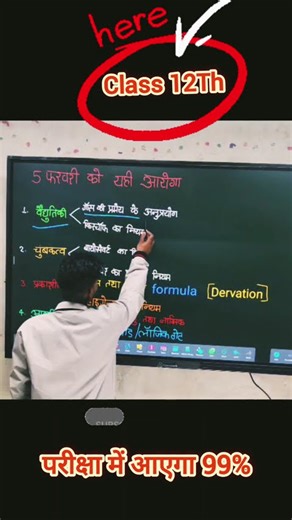 here
Class 12Th
5 फरवरी को यही आयेगा
1. वैद्युतिकी
गॉस की प्रमेय के अनुप्रयोग
किरचॉफ का नियम
2. चुम्बकत्व
बायोसेवर्ट का
का नियम
3. प्रकाशि
तथा formula [Dervation]
4.
नियम
तथा नाभिक
/लॉजिक गेट
परीक्षा में आएगा 99%